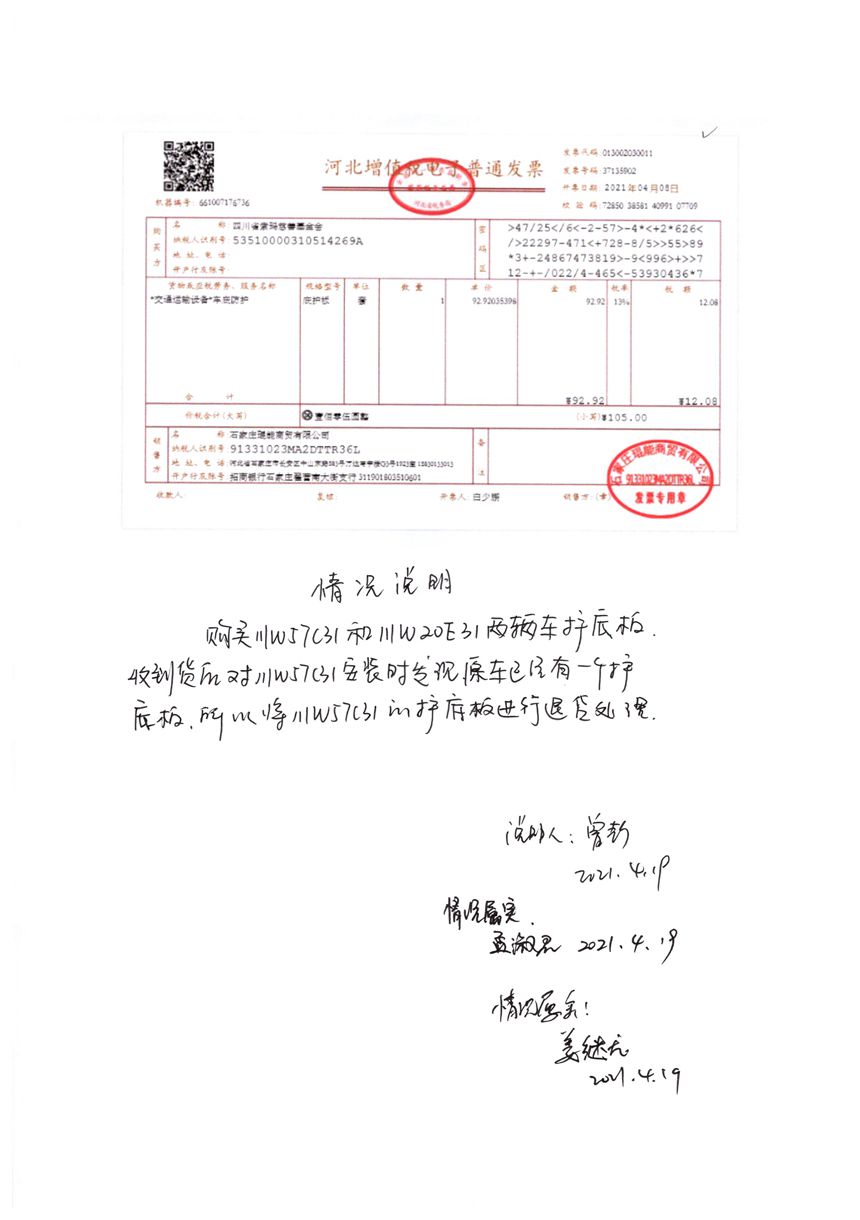 河北增值税电子普通发票
发票代码:013002030011
发票号码:37135902
开票日期:2021年04月08日
机器编号:661007176736
校验码:72850 38581 40991 07709
购买方
名称:四川省索玛慈善基金会
纳税人识别号:53510000310514269A
地址、电话:
开户行及账号:
密码区
>47/25</6<-2-57>-4*<+2*626<
/>22297-471<+728-8/5>>55>89
*3+-24867473819>-9<996>+>>7
12-+-/022/4-465<-53930436*7
货物或应税劳务、服务名称 规格型号 单位 数量 单价 金额 税率 税额
*交通运输设备*车底防护 底护板 套 1 92.92035398 92.92 13% 12.08
合计 ¥92.92 ¥12.08
价税合计(大写) ⊗壹佰零伍圆整 (小写)¥105.00
销售方
名称:石家庄琨能商贸有限公司
纳税人识别号:91331023MA2DTTR36L
地址、电话:河北省石家庄市长安区中山东路
开户行及账号:招商银行石家庄翟营南大街支行311901803510601
备注
收款人: 复核: 开票人:白少 销售方:(章)
石家庄琨能商贸有限公司
91331023MA2DTTR36L
发票专用章
情况说明
购买川W57C31和川W20E31两辆车护底板.
收到货后对川W57C31安装时发现原车已经有一个护
底板,所以将川W57C31的护底板进行退货处理.
说明人:曾
2021.4.19
情况属实.
孟淑君 2021.4.19
情况属实!
姜继
2021.4.19